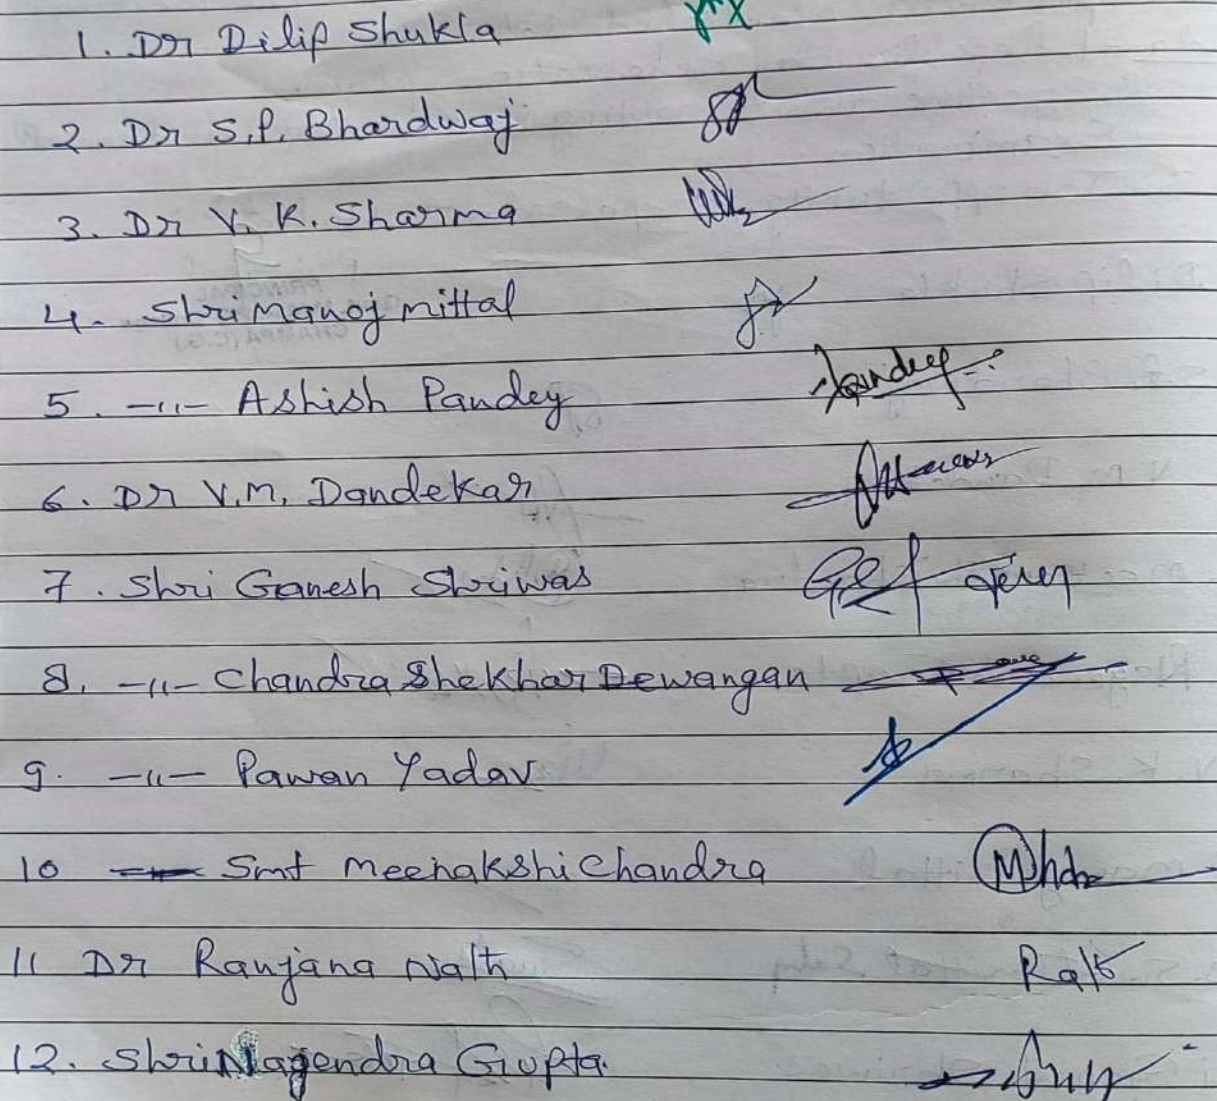 1. Dr Dilip Shukla
2. Dr S.P. Bhardwaj
3. Dr V. K. Sharma
4. Shri Manoj Mittal
5. -11- Ashish Pandey Pandey
6. Dr V.M. Dandekar
7. Shri Ganesh Shriwas
8. -11- Chandra Shekhar Dewangan
9. -11- Pawan Yadav
10 Smt Meenakshi Chandra
11 Dr Ranjana Nath
12. Shri Nagendra Gupta.